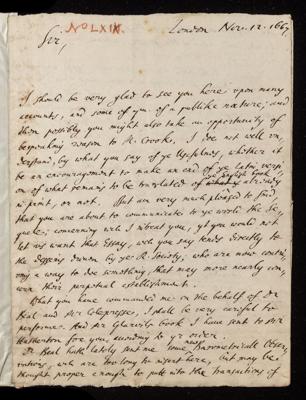 No LXIX.
London Nov. 12. 1667
Sir,
I should be very glad to see you here upon many
accounts, and some of ym. of a publike nature; and
then possibly you might also take an opportunity of
bespeaking reason to R. Crooke. I doe not well un-
derstand, by what you say of ye Usefulnes, whether it
be an encouragement to make an end of ye latin versi-
ye English book
on of what remains to be translated of already
in print, or not. But am very much pleased to find,
that you are about to communicate to ye world the Se-
quele; concerning wch I intreat you, yt you would not
let us want that Essay, wch you say tends directly to
the designe owned by ye R. Society; who are now contri-
ving a way to doe something, that may more nearly con-
cern their perpetual establishment.
What you have commanded me on the behalf of Dr
Beal and Mr Colepresse, I shall be very carefull to
performe. And Mr Glanvills book I have sent to Mr
for you, according to yr order.
Dr Beal hath lately sent me some new Baromericall Obser-
vations, wch are too long to insert here, but may be
thought proper enough to put into the Transactions of